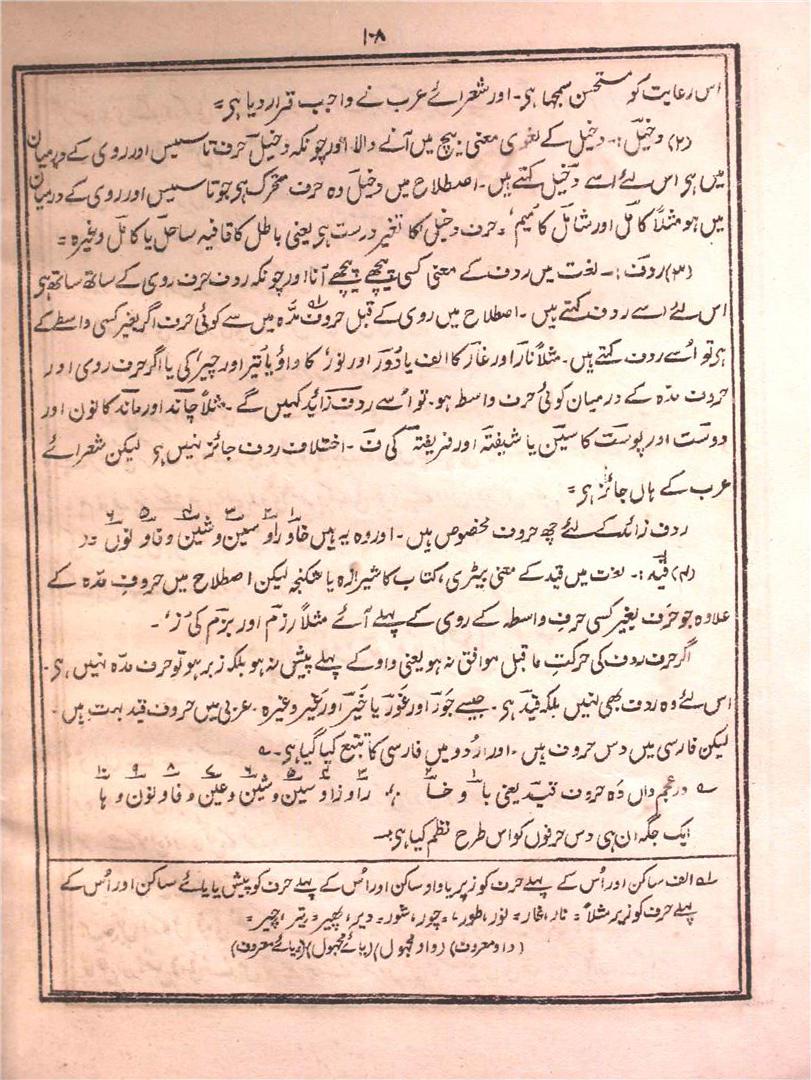 ۱۰۸
اس رعایت کو مستحسن سمجھا ہی۔ اور شعرائے عرب نے واجب قرار دیا ہی =
(۲) دخیل :۔ دخیل کے لغوی معنی بیچ میں آنے والا اور چونکہ دخیل حرف تاسیس اور روی کے درمیان
میں ہی اس لئے اسے دخیل کہتے ہیں۔ اصطلاح میں دخیل وہ حرف متحرک ہی جو تاسیس اور روی کے درمیان
میں ہو مثلاً کامل اور شامل کا میم، = حرف دخیل کا تغیر درست ہی یعنی باطل کا قافیہ ساحل یا کامل وغیرہ =
(۳) ردف :۔ لغت میں ردف کے معنی کسی کے پیچھے پیچھے آنا اور چونکہ ردف حرف روی کے ساتھ ساتھ ہی
اس لئے اسے ردف کہتے ہیں ۔ اصطلاح میں روی کے قبل حروف مدّہ ۱ میں سے کوئی حرف اگر بغیر کسی واسطے کے
ہی تو اُسے ردف کہتے ہیں۔ مثلاً نار اور غار کا الف یا دُور اور نور کا واؤ یا تیر اور چیر، کی یا اگر حرف روی اور
حروف مدہ کے درمیان کوئی حرف واسط ہو۔ تو اُسے ردف زائد کہیں گے ۔ مثلاً چاند اور ماند کا نون اور
دوست اور پوست کا سین یا شیفتہ اور فریفتہ کی ف ۔ اختلاف ردف جائز نہیں ہی لیکن شعرائے
عرب کے ہاں جائز ہی =
ردف زائد کے لئے چھ حروف مخصوص ہیں ۔ اور وہ یہ ہیں خا ۱ و را ۲ و سین ۳ و شین ۴ و فا ۵ و نون ۶ =
(۴) قید :۔ لغت میں قید کے معنی بیڑی، کتاب کا شیرازہ یا شکنجہ لیکن اصطلاح میں حروفِ مدّہ کے
علاوہ جو حرف بغیر کسی حرفِ واسطہ کے روی کے پہلے آئے مثلاً رزم اور بزم کی ز، ۔
اگر حرف ردف کی حرکتِ ما قبل موافق نہ ہو یعنی واو کے پہلے پیش نہ ہو بلکہ زبر ہو تو حرف مدّہ نہیں ہی۔
اس لئے وہ ردف بھی نہیں بلکہ قید ہی ۔ جیسے جَور اور غَور یا خَیر اور غَیر وغیرہ ۔ عربی میں حروف قید بہت ہیں ۔
لیکن فارسی میں دس حروف ہیں ۔ اور اردو میں فارسی کا تتبع کیا گیا ہی۔
در عجم داں دَہ حروف قید یعنی با ۱ و خا ۲ را ۳ و زا ۴ و سین ۵ و شین ۶ و غین ۷ و فا ۸ و نون ۹ و ہا ۱۰
ایک جگہ ان ہی دس حرفوں کو اس طرح نظم کیا ہی۔
۱ الف ساکن اور اُس کے پہلے حرف کو زبر یا واو ساکن اور اُس کے پہلے حرف کو پیش یا یائے ساکن اور اُس کے
پہلے حرف کو زیر مثلاً = نار، غار = نور، طور، = چور، شور = دیر، = تیر، چیر =
(واو معروف) (واو مجہول) (یائے مجہول) (یائے معروف)